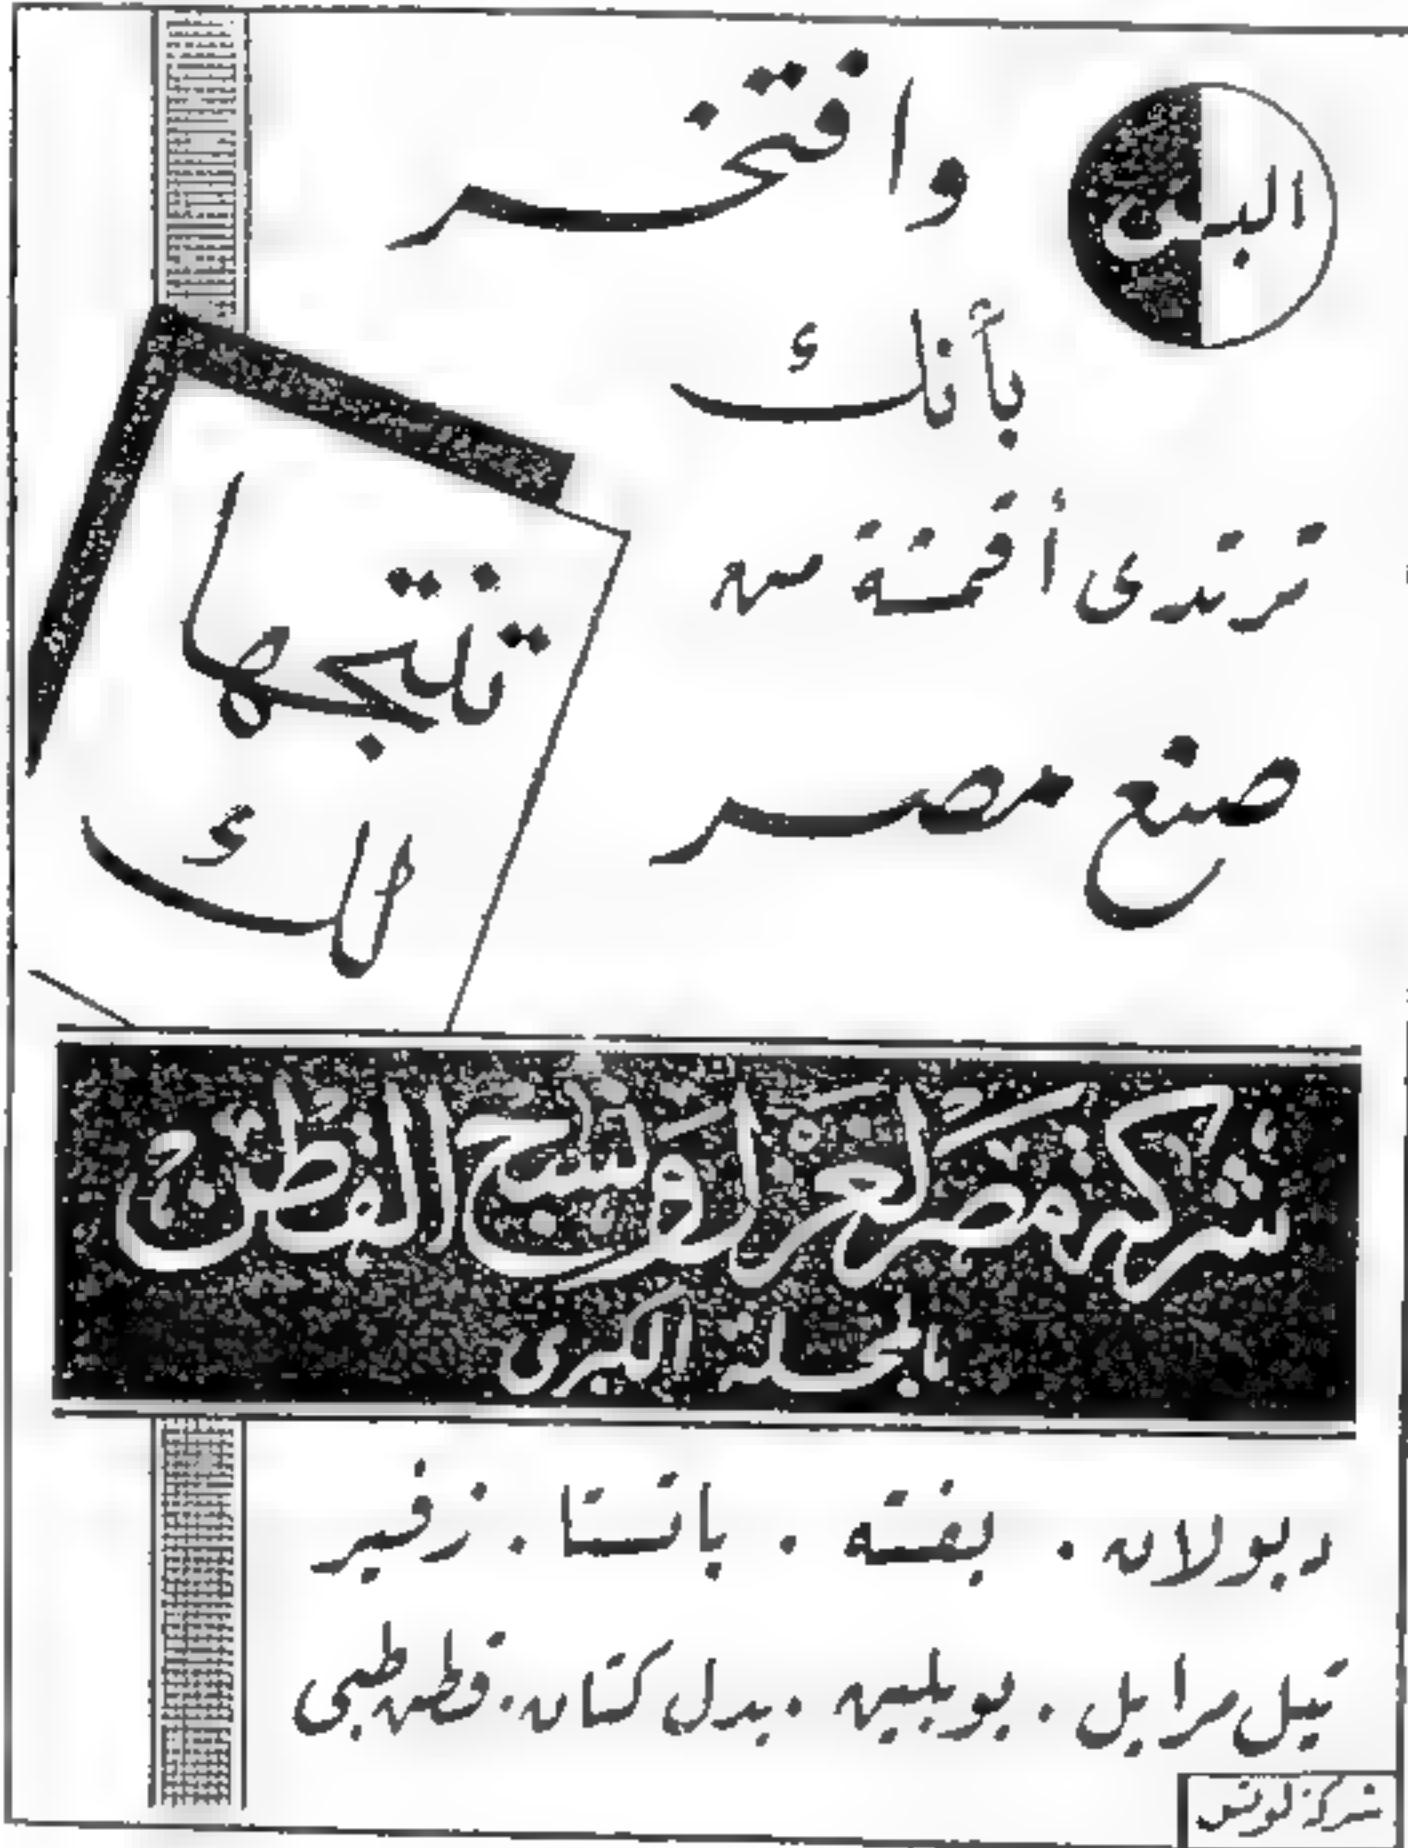 البس
وافتخر
بأنك
ترتدى أقمشة من
صنع مصر
تنتجها
لك
شركة مصر لغزل ونسيج القطن
بالمحلة الكبرى
دبولان . بفته . باتستا . زفير
تيل مرايل . بوبلين . بدل كتان . قطن طبى
شركة لوتس